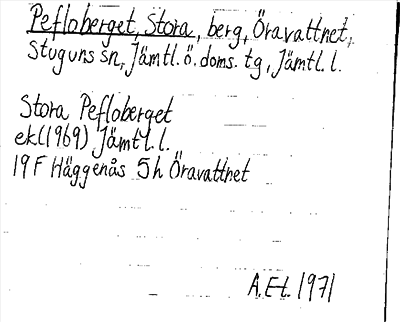 Pefloberget, Stora, berg, Öravattnet,
Stuguns sn, Jämtl. ö. doms. tg, Jämtl. l.
Stora Pefloberget
ek(1969) Jämtl. l.
19 F Häggenås 5h Öravattnet
A.Et. 1971